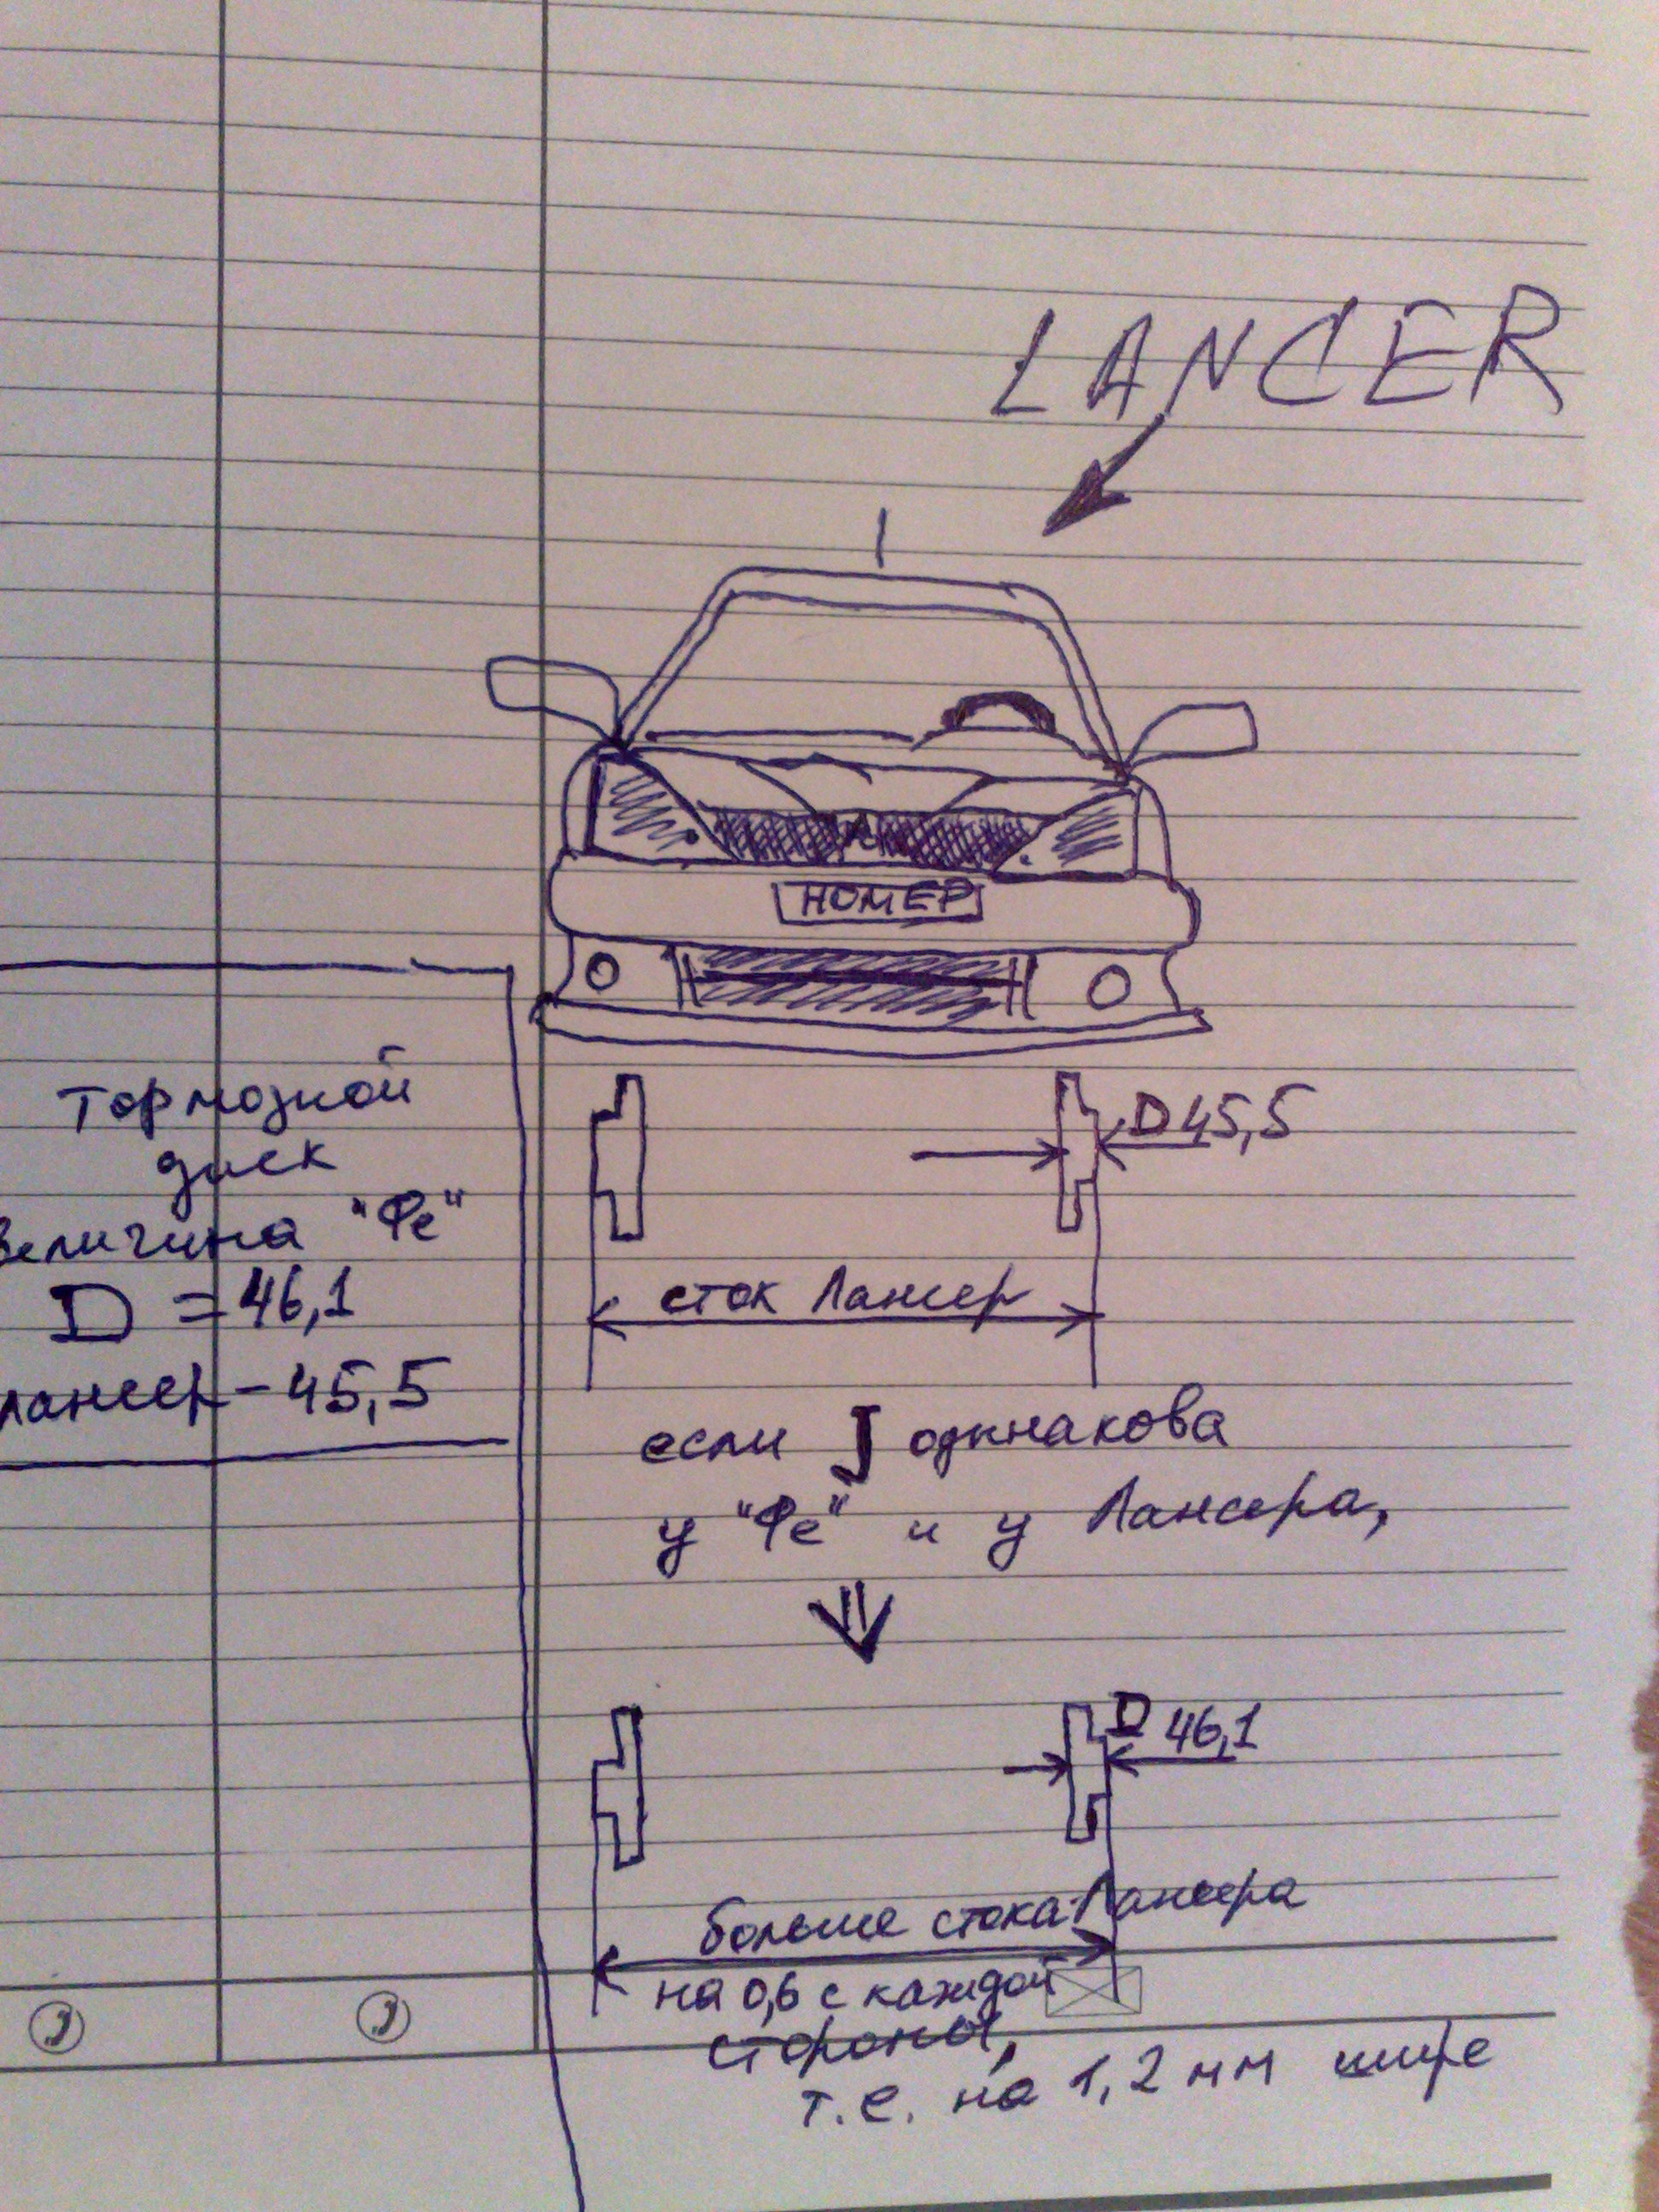 LANCER
НОМЕР
тормозной
диск
величина "Фе"
D = 46,1
лансер - 45,5
D 45,5
сток Лансер
если J одинакова
у "Фе" и у Лансера,
D 46,1
больше стока Лансера
на 0,6 с каждой
стороны,
т.е. на 1,2 мм шире